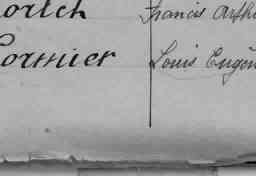 ortch Francis Arthu
Cormier Louis Eugèn